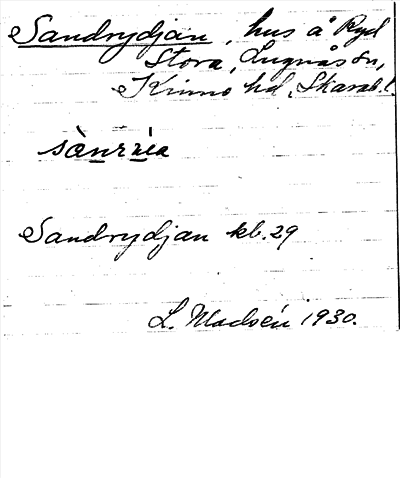 Sandrydjan, hus å Ryd
Stora, Lugnås sn,
Kinne hd, Skarab. l.
sànrŕia
Sandrydjan kb. 29
L. Madsén 1930.